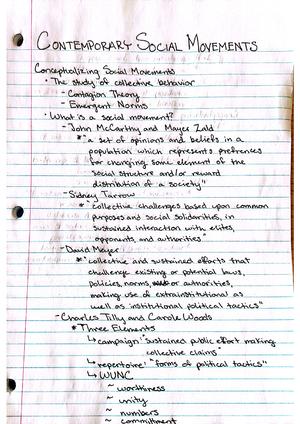 CONTEMPORARY SOCIAL MOVEMENTS
Conceptualizing Social Movements
• The study of collective behavior
- Contagion Theory
- Emergent Norms
• What is a social movement?
- John McCarthy and Mayer Zald
* "a set of opinions and beliefs in a
population which represents prefrences
for changing some element of the
social structure and/or reward
distribution of a society"
- Sidney Tarrow
* "collective challenges based upon common
purposes and social solidarities, in
sustained interaction with elites,
opponents, and authorities"
- David Meyer
* "collective and sustained efforts that
challenge existing or potential laws,
policies, norms, or authorities,
making use of extrainstitutional as
well as institutional political tactics"
- Charles Tilly and Carole Woods
* Three Elements
↳ campaign: "sustained public effort making
collective claims"
↳ repertoire: "forms of political tactics"
↳ WUNC
~ worthiness
~ unity
~ numbers
~ commitment